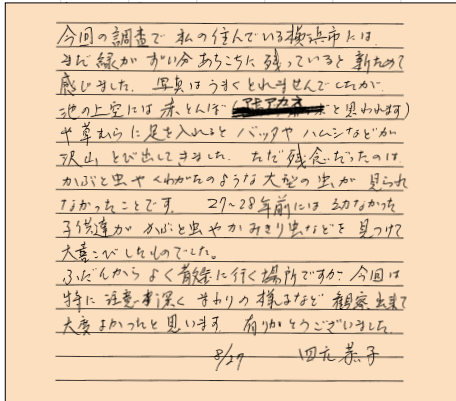 今回の調査で 私の住んでいる横浜市には
まだ緑が ずい分 あちこちに 残っていると 新ためて
感じました。 写真は うまく とれませんでしたが、
池の上空には 赤とんぼ (アキアカネ と思われます)
や草むらに足を入れると バッタや ハムシなどが
沢山 とび出してきました。 ただ残念だったのは
かぶと虫や くわがたのような 大型の虫が 見られ
なかったことです。 27~28年前には 幼なかった
子供達が かぶと虫や かみきり虫などを 見つけて
大喜こびしたものでした。
ふだんから よく 散歩に行く場所ですが 今回は
特に 注意深く まわりの様子など 観察出来て
大変よかったと思います 有りがとうございました。
8/27 四元 恭子